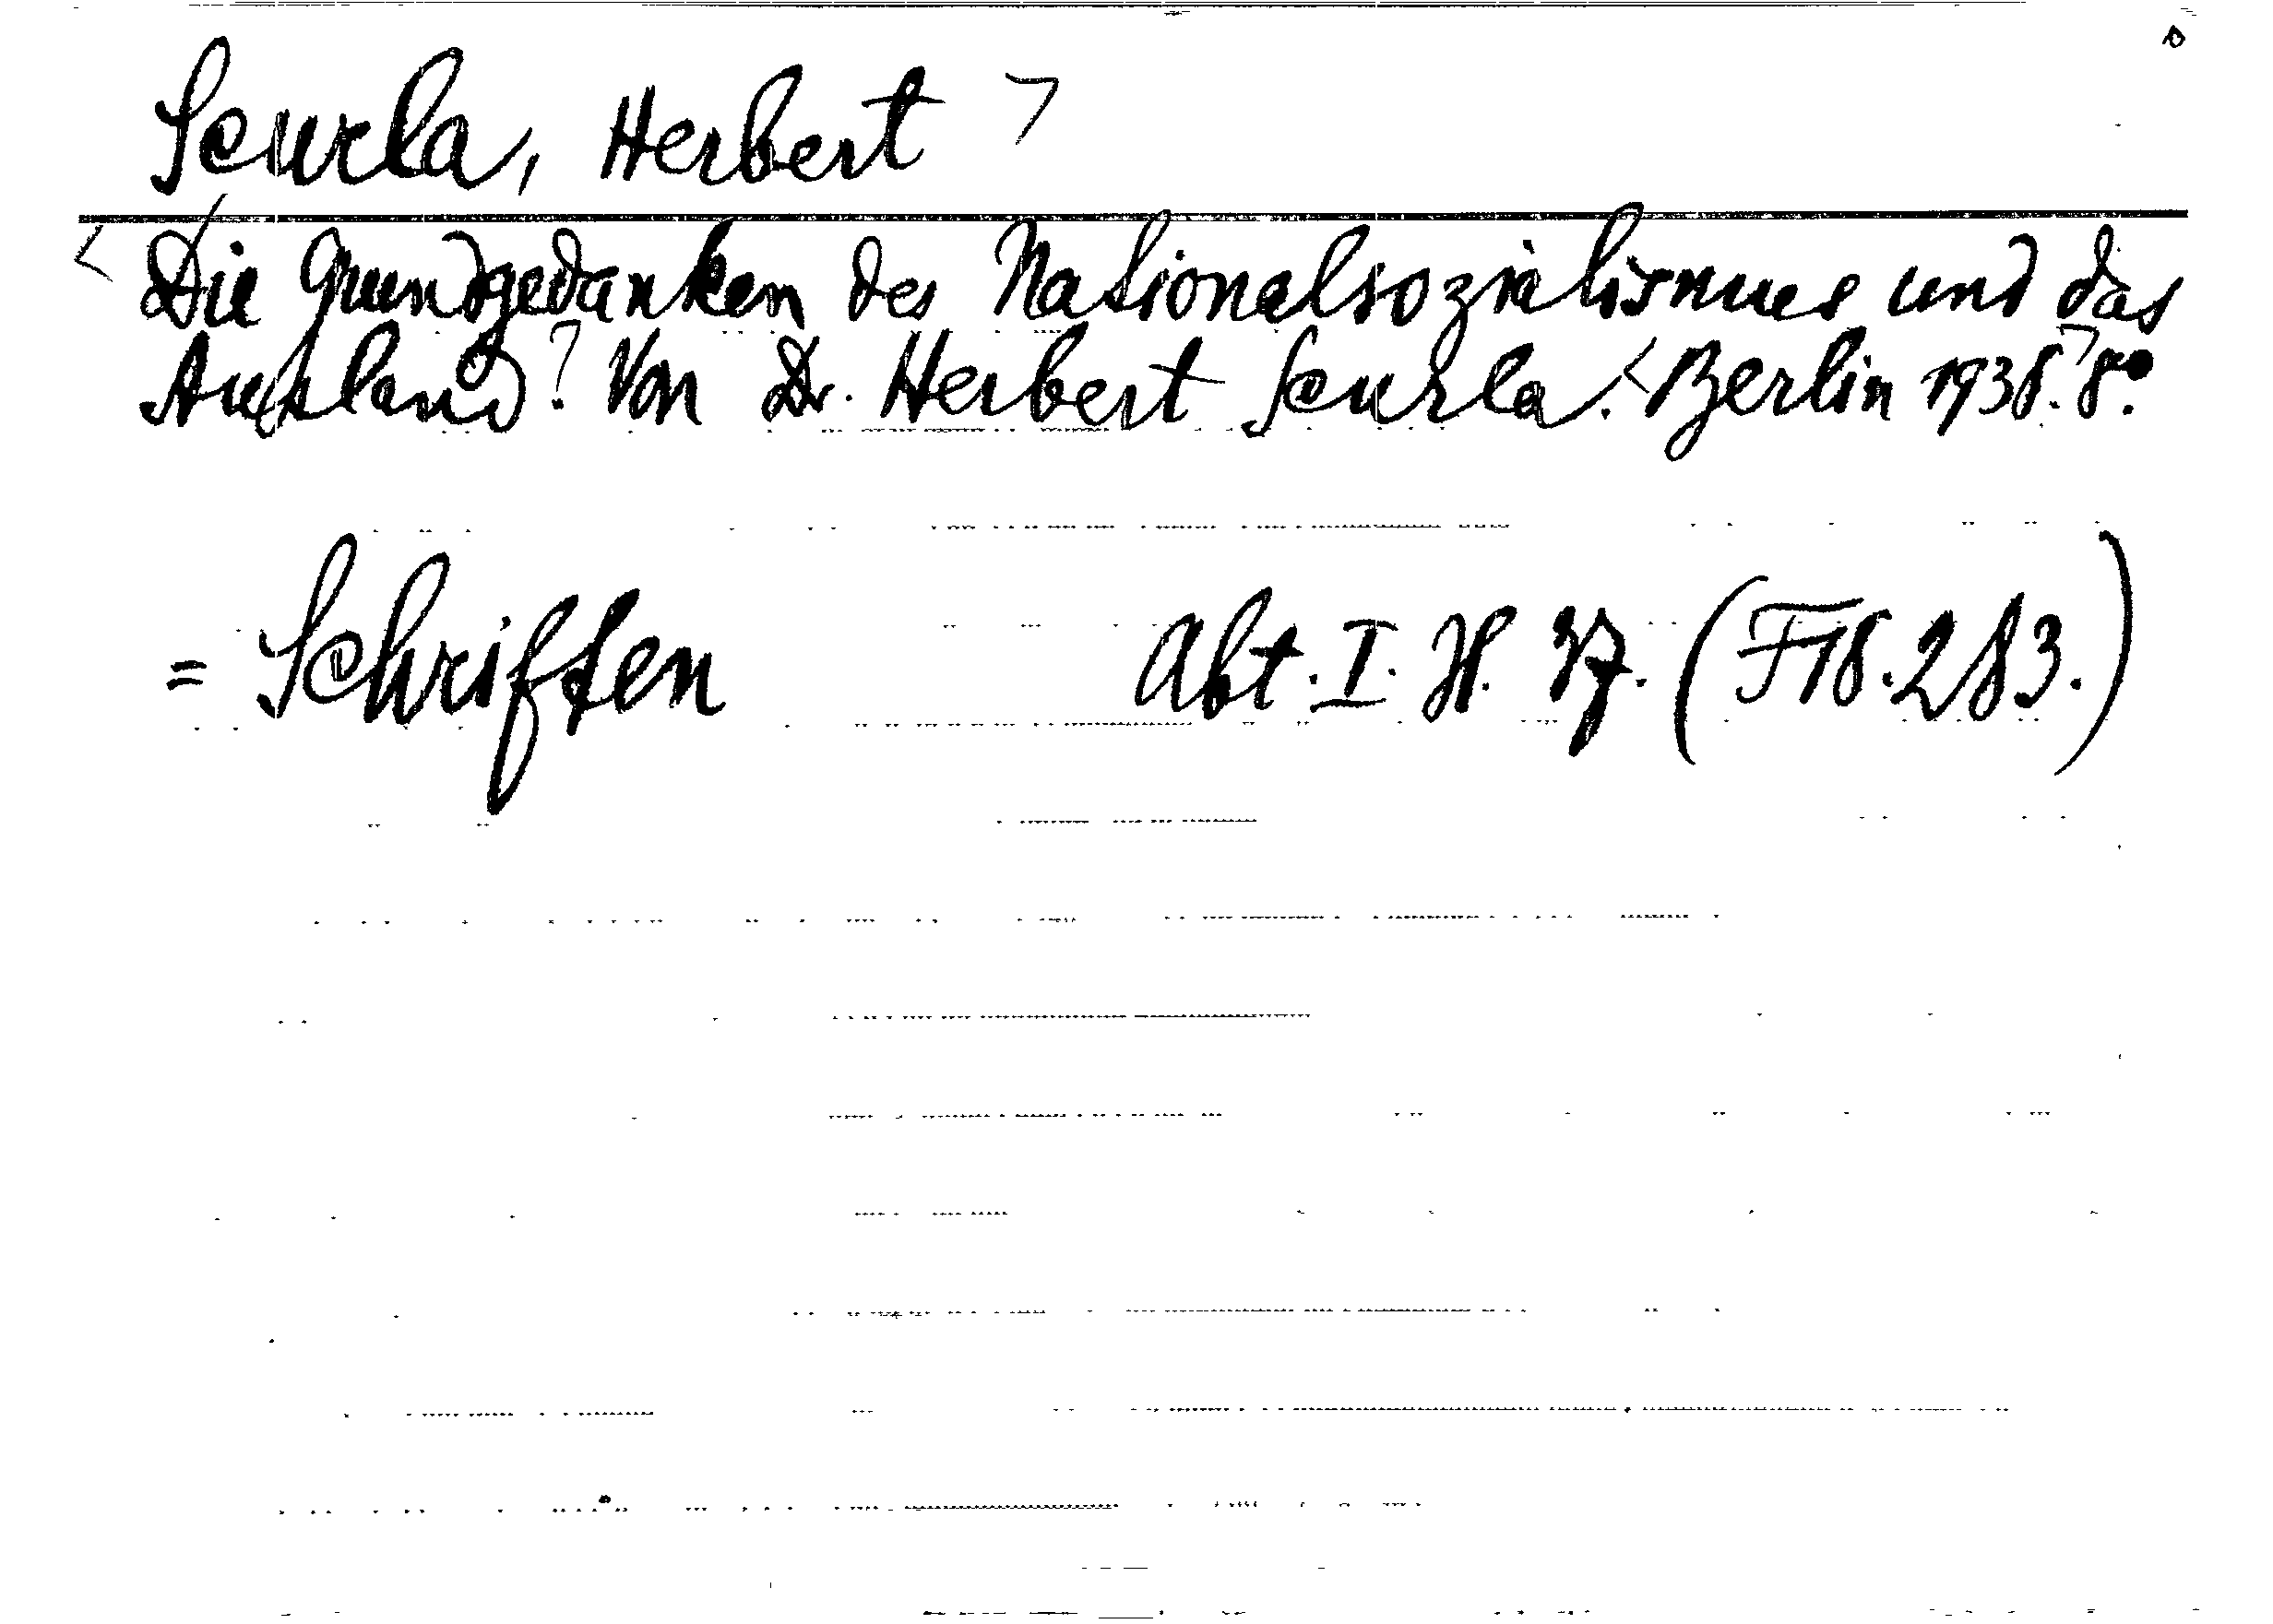 Scurla, Herbert
Die Grundgedanken des Nationalsozialismus und das
Ausland. Von Dr. Herbert Scurla. Berlin 1938. 8°.
= Schriften Abt. I. H. 27. (F18.283.)